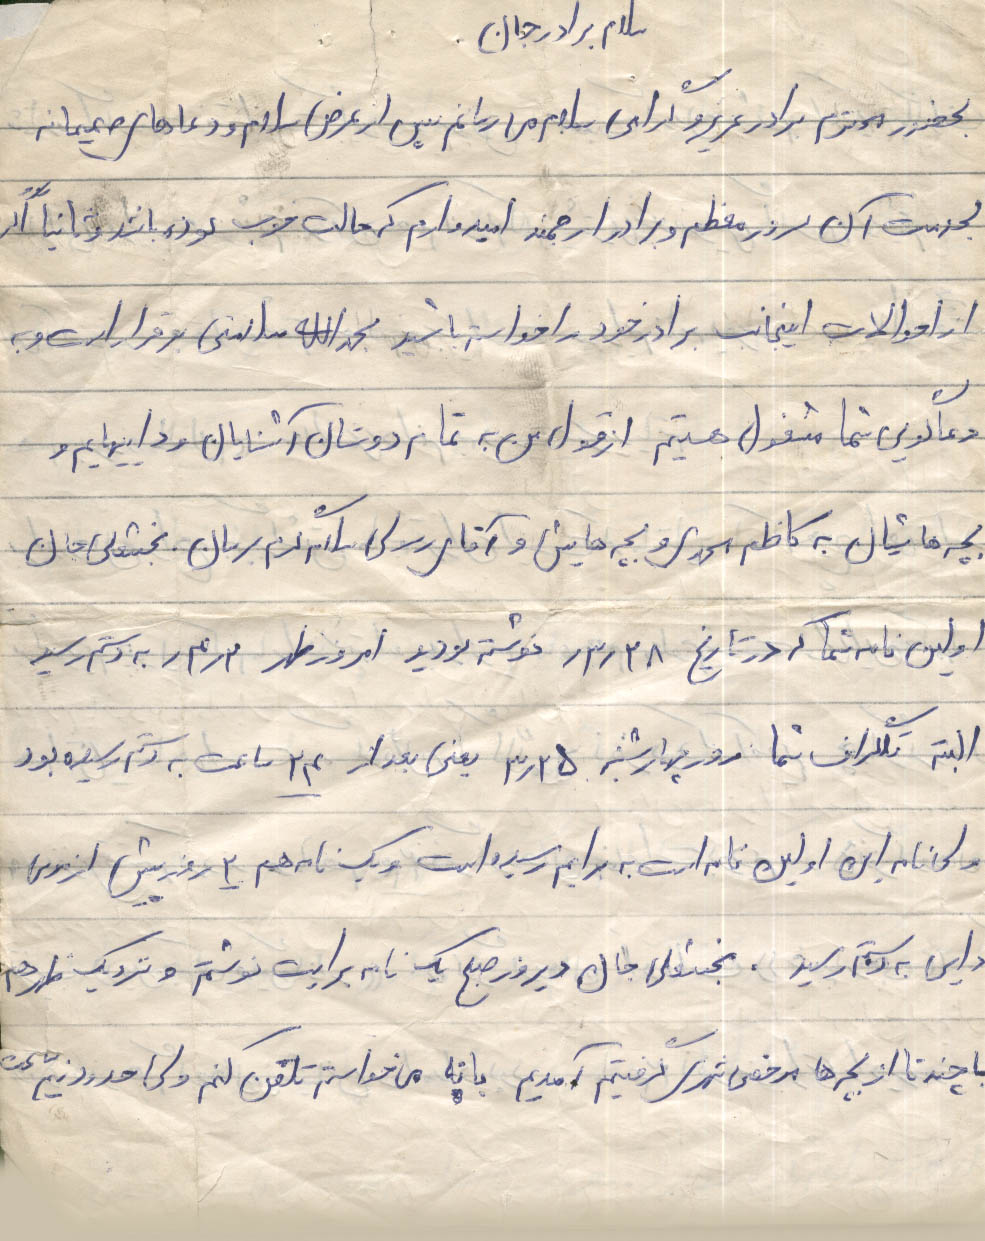 سلام برادر جان .
بحضور محترم برادر عزیز و گرامی سلام می رسانم پس از عرض سلام و دعاهای صمیمانه
بخدمت آن سرور معظم و برادر ارجمند امیدوارم که حالت خوب بوده باشد و ثانیاً اگر
از احوالات اینجانب برادر خود را خواسته باشید بحمدالله سلامتی برقرار است و به
دعاگویی شما مشغول هستیم از قول من به تمام دوستان آشنایان و داییهایم و
بچه هاشان به کاظم و بچه هایش و آقای سلام گرم برسان . بخشعلی جان
اولین نامه شما که در تاریخ ۳٫۲۸ نوشته بودید امروز ظهر ۴٫۳ به دستم رسید
البته تلگراف شما روز چهارشنبه ۳٫۲۵ یعنی بعد از ۲۴ ساعت به دستم رسیده بود
ولی نامه این اولین نامه است به برایم رسیده است و یک نامه هم ۲ روز پیش از سوی
دایی به دستم رسید . بخشعلی جان دیروز صبح یک نامه برایت نوشتم و نزدیک ظهر هم
با چند تا از بچه ها مرخصی شهری گرفتیم آمدیم بانه می خواستم تلفن کنم ولی حدود نیم ساعت